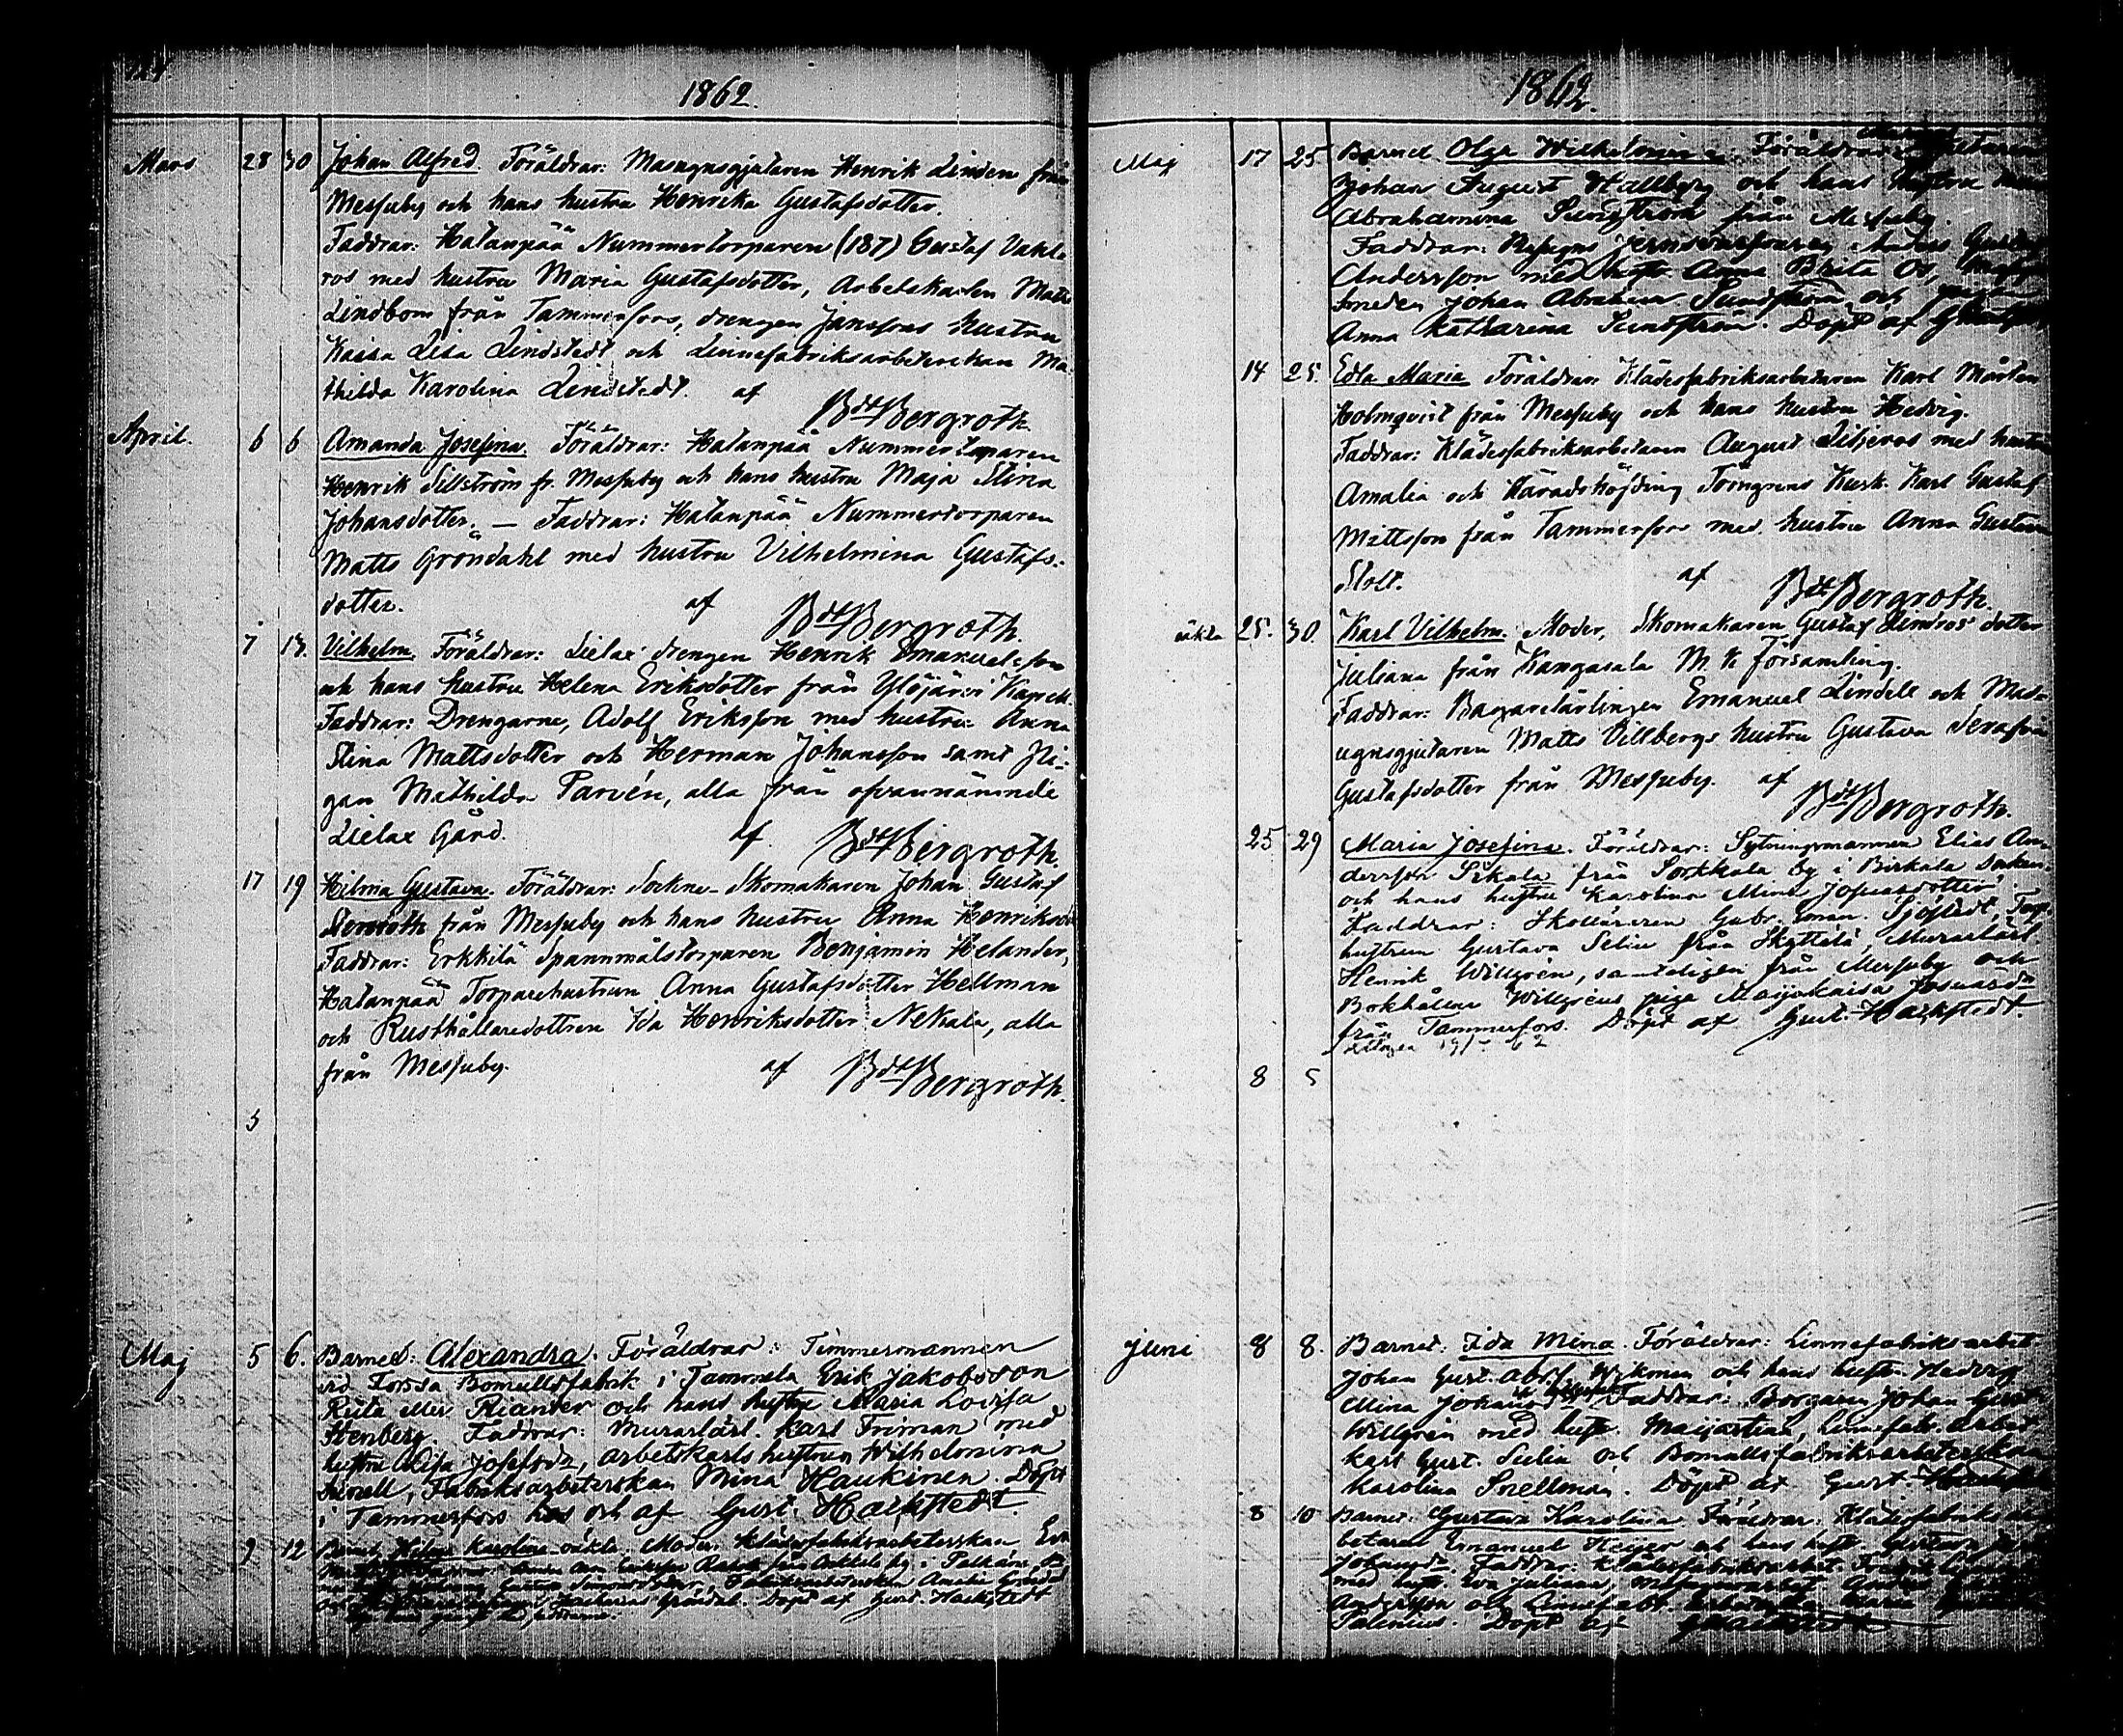 124.
1862.
Mars 28 30 Johan Alfred. Föräldrar: Masugnsgjutaren Henrik Linden från
Messuby och hans hustru Henrika Gustafsdotter.
Faddrar: Hatanpää Nummertorparen (187) Gustaf Vahle
ros med hustru Maria Gustafsdotter, Arbetskarlen Matts
Lindbom från Tammerfors, drengen Janssons hustru
Kaisa Lisa Lindstedt och Linnefabriksarbeterskan Ma
thilda Karolina Lindstedt. af
Bdt Bergroth.
April. 6 6 Amanda Josefina. Föräldrar: Hatanpää Nummertorparen
Henrik Sillström fr. Messuby och hans hustru Maja Stina
Johansdotter. — Faddrar: Hatanpää Nummertorparen
Matts Gröndahl med hustru Vilhelmina Gustafs-
dotter. af Bdt Bergroth.
7 13. Vilhelm. Föräldrar: Lielax drengen Henrik Emanuelsson
och hans hustru Helena Eriksdotter från Ylöjärvi Kapell.
Faddrar: Drengarne, Adolf Eriksson med hustru Anna
Stina Mattsdotter och Herman Johansson samt Pi-
gan Mathilda Parvén, alla från ofvannämnde
Lielax Gård. af Bdt Bergroth.
17 19 Hilma Gustava. Föräldrar: Sockne-Skomakaren Johan Gustaf
från Messuby och hans hustru Anna Henriksd
Faddrar: Erkkilä Spannmålstorparen Benjamin Helander,
Hatanpää Torparehustrun Anna Gustafsdotter Hellman
och Rusthållaredottren Ida Henriksdotter Nekala, alla
från Messuby. af Bdt Bergroth.
5
Maj 5 6. Barnet: Alexandra. Föräldrar: Timmermannen
vid Forssa Bomullsfabrik i Tammela Erik Jakobsson
Ruta eller Riander och hans hustru Maria Lovisa
Stenberg. Faddrar: Murarlärl. Karl Friman med
hustru Lisa Josefsdr, arbetskarls hustrun Wilhelmina
Fabriksarbeterskan Mina Haukinen. Döpt
i Tammerfors hos och af Gust. Hackstedt.
9 12 Barnet Hilma Karolina oäkta. Moder: Klädesfabriksarbeterskan, Eva
Gröndal. Döpt af Gust. Hackstedt
1862.
Maj 17 25 Barnet Olga Wilhelmina. Föräldrar:
Johan August Hallberg och hans hustru
Abrahamina Sundström från Messuby.
Faddrar: Gustaf
Andersson med hustr. Anna Brita
smeden Johan Abraham Sundström och
Anna Katharina Sundström. Döpt af
14 25. Edla Maria Föräldrar: Klädesfabriksarbetaren Karl Mårten
Holmqvist från Messuby och hans hustru Hedvig.
Faddrar: Klädesfabriksarbetaren August Liljeros med hustru
Amalia och Häradshöfding Törngrens Kusk Karl Gustaf
Mattsson från Tammerfors med hustru Anna Gustava
Stolt. af Bdt Bergroth.
oäkta 25. 30. Karl Vilhelm. Moder, Skomakaren Gustaf Lindros' dotter
Juliana från Kangasala M. k församling.
Faddrar: Bagarelärlingen Emanuel Lindell och Mas-
ugnsgjutaren Matts Villbergs hustru Gustava Serafina
Gustafsdotter från Messuby. af
Bdt Bergroth.
25 29 Maria Josefina. Föräldrar: Sytningsmannen Elias An-
dersson Sikala från Sorkkala by i Birkala socken
och hans hustru Karolina Mina Josuasdotter.
Faddrar: Skolläraren Gabr. Eman. Sjöstedt, Torp.
hustrun Gustava Selin från Skyttälä, Murarlärl.
Henrik Willgrén, samteligen från Messuby och
Bokhållar Willgréns piga Maijakaisa Josuasdr
från Tammerfors. Döpt af Gust. Hackstedt.
8 5
Juni 8 8. Barnet: Ida Mina. Föräldrar: Linnefabriks arbet.
Johan Gust. Wikman och hans hustr. Hedvig
Mina Johansd. Faddrar: Borgaren Johan Gust
Willgrén med hustr. Maijastina, Linnefabr. arbet.
Karl Gust. Selin och Bomullsfabriksarbeterskan
Karolina Snellman. Döpt af Gust. Hackstedt
8 10 Barnet: Gustava Karolina. Föräldrar: Klädesfabriks ar-
betaren Emanuel Heijer och hans hustr. Gustava
Johansdr. Faddrar: Klädesfabriksarbet. Fredrik
med hustr. Eva Juliana, Masugnsarbet. Anders
Andersson och Linnefabr. arbeterskan Maria
Palenius. Döpt af GHackstedt